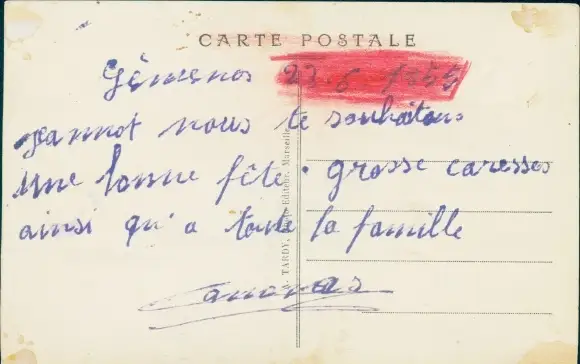 CARTE POSTALE
Gémenos 23-6 1955
Jeannot nous te souhaitons
une bonne fête. grosse caresses
ainsi qu'a toute la famille
TARDY, Editeur, Marseille